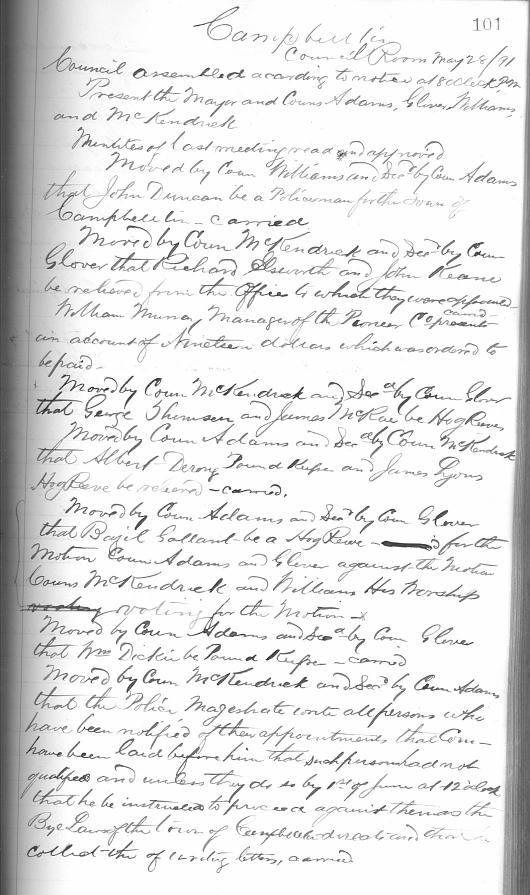 101
Campbellton
Council Room May 28/91
Council assembled acording to notice at 8 oclock P.m
Present the Mayor and Couns Adams, Glover, Williams,
and McKendrick
Minites of last meeting read and approved
Moved by Coun Williams and Secd by Coun Adams
that John Duncan be a Policeman for the Town of
Campbellton - carried
Moved by Coun McKendrick and Secd by Coun
Glover that Richard Elsworth and John Keane
be relieved from the Office to which they were appointed
carried -
William Murray Manager of the Pioneer Co presents
an account of Nineteen dollars which was ordered to
be paid -
Moved by Coun McKendrick and Secd by Coun Glover
that George Thomson and James McRae be Hog Reeves
Moved by Coun Adams and Secd by Coun McKendrick
that Albert Pound Keeper and James Lyons
Hog Reeve be relieved - carried.
Moved by Coun Adams and Secd by Coun Glover
that Bazil Gallant be a Hog Reeve - for the
Motion Coun Adams and Glover against the Motion
Couns McKendrick and Williams His Worship
voting for the Motion - x
Moved by Coun Adams and Secd by Coun Glover
that Wm Dickie be Pound Keeper - carried
Moved by Coun McKendrick and Secd by Coun Adams
that the Police Magestrate write all persons who
have been notified of their appointments that Com-
have been laid before him that such person had not
qualified and unless they do so by 1st of June at 12 oclock
that he be instructed to proceed against them as the
Bye Laws of the town of Campbellton directs and
collect the of writing letters, carried